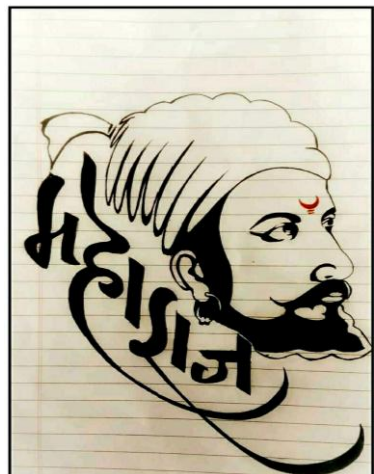 महाराज